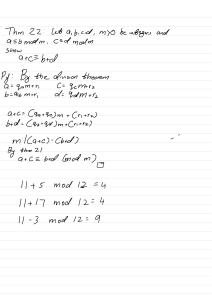 Thm 22 Let a,b,c,d, m>0 be integers and
a≡b mod m, c≡d mod m
Show
a+c ≡ b+d
Pf: By the division theorem
a = q₁m+r₁ c = q₂m+r₂
b = q₃m+r₁ d = q₄m+r₂
a+c = (q₁+q₂)m + (r₁+r₂)
b+d = (q₃+q₄)m + (r₁+r₂)
m | (a+c) - (b+d)
By thm 21
a+c ≡ b+d (mod m)
11 + 5 mod 12 = 4
11 + 17 mod 12 = 4
11 - 3 mod 12 = 9